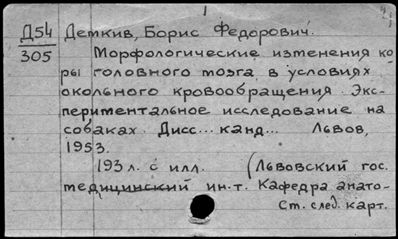 1
Д54 Демкив, Борис Федорович.
305 Морфологические изменения ко
ры головного мозга в условиях
окольного кровообращения. Экс-
периментальное исследование на
собаках. Дисс... канд... Львов,
1953.
193 л. с илл. (Львовский гос.
медицинский ин-т. Кафедра анато-
Ст. след. карт.